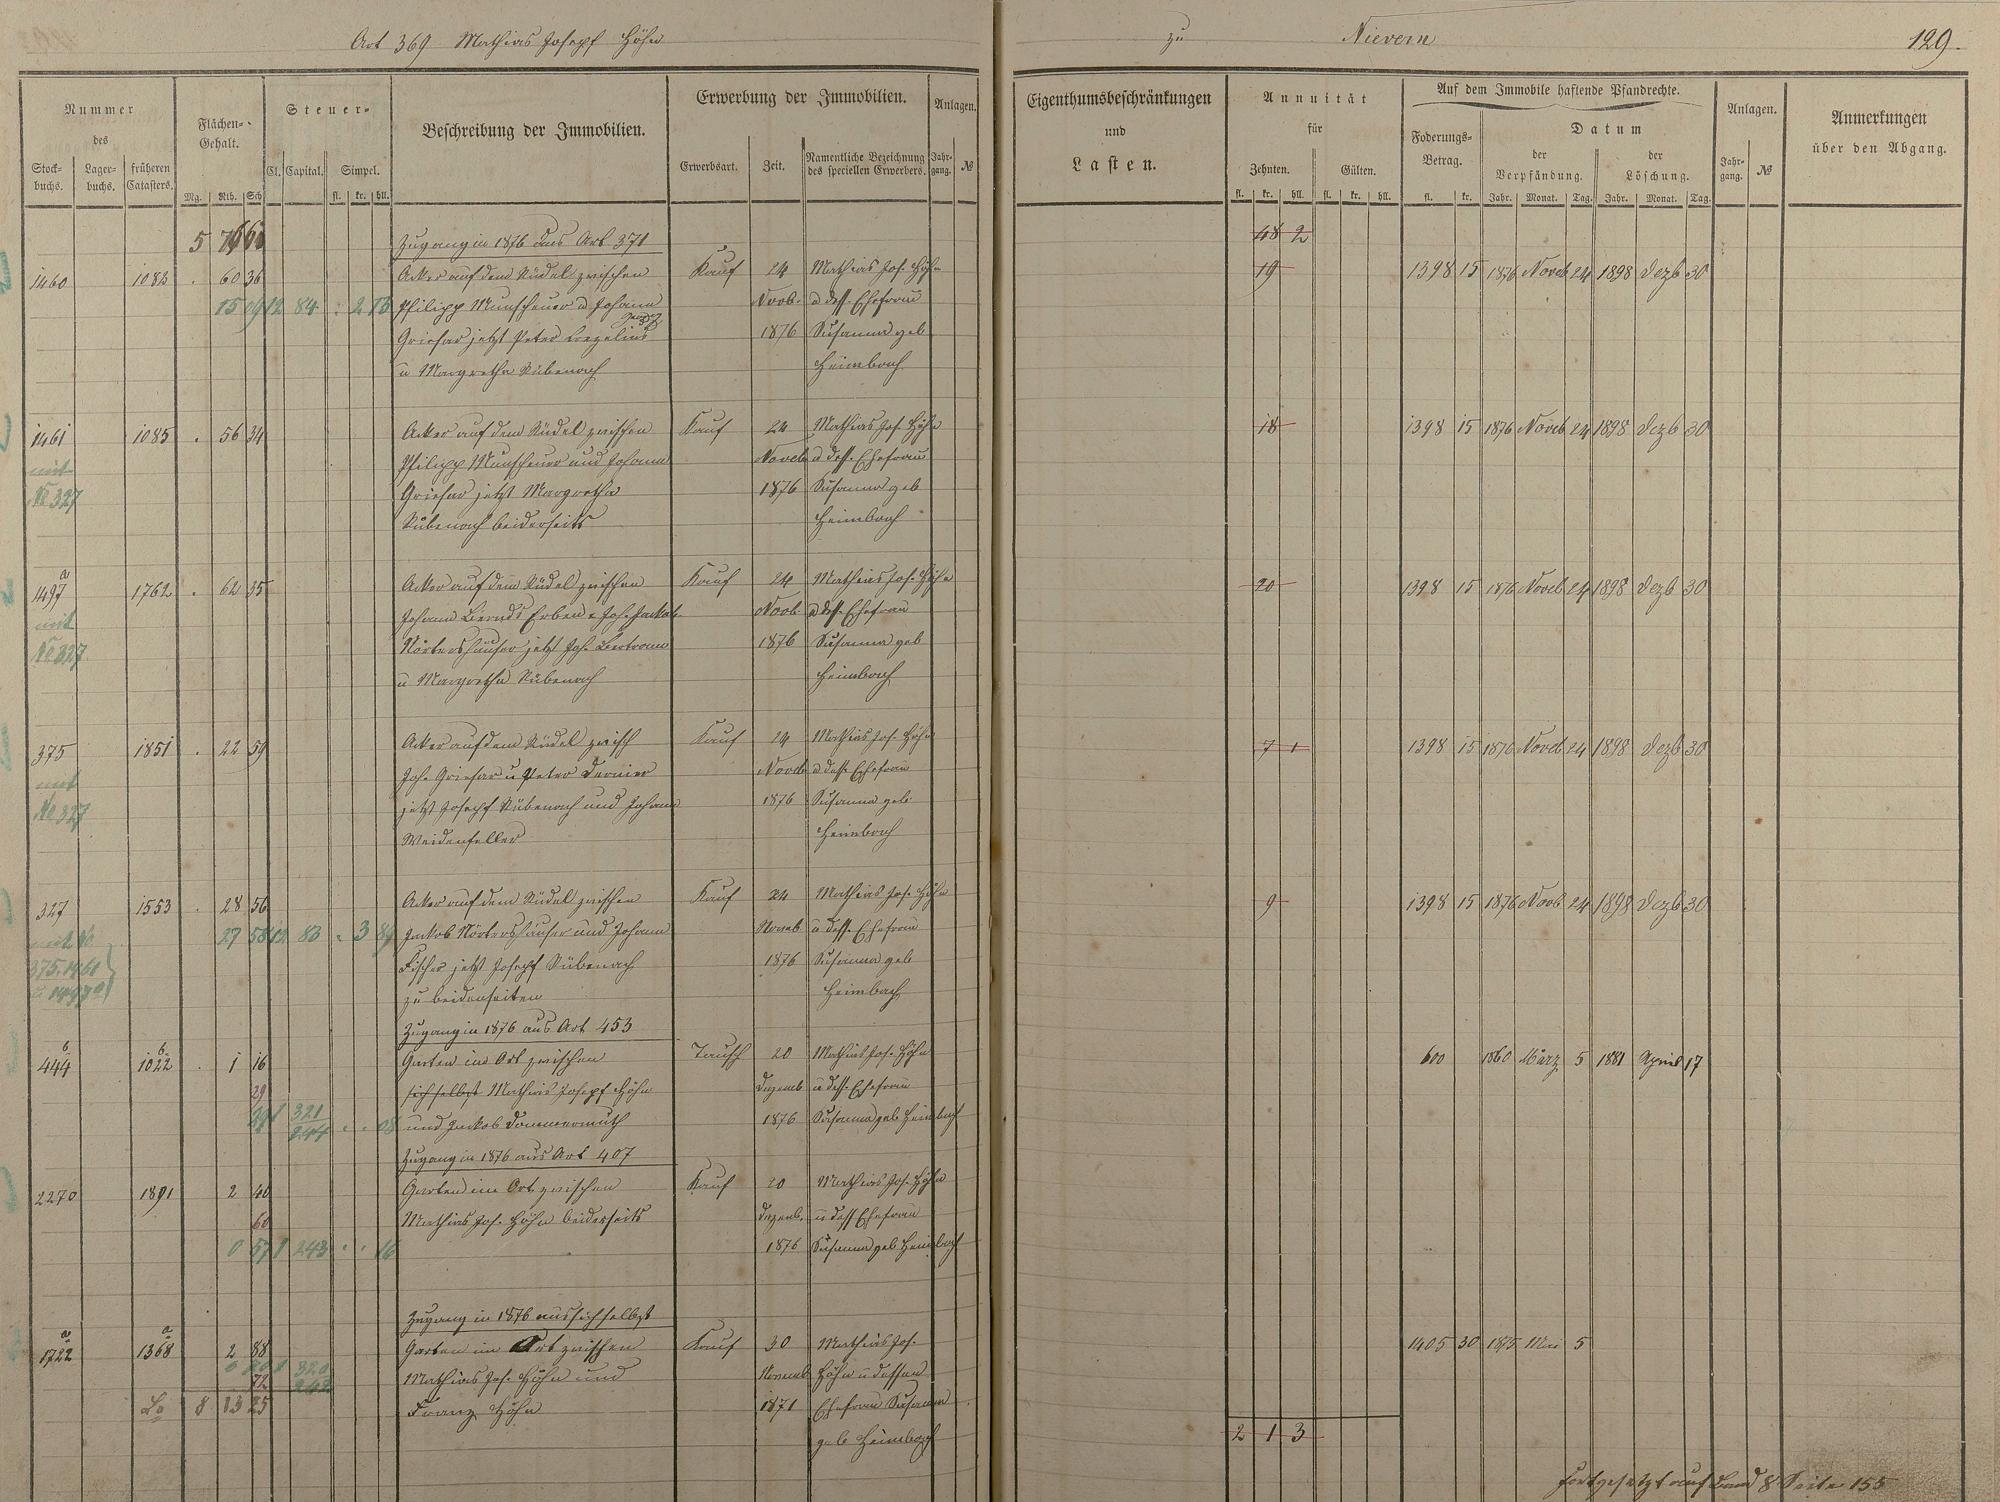 Art 369 Mathias Josepf Höhn
zu Nievern 129.
Nummer des
Stock-buchs. Lager-buchs. früheren Catasters.
Flächen-Gehalt.
Mg. Rth. Sch
Steuer-
Cl. Capital. Simpel.
fl. kr. hll.
Beschreibung der Immobilien.
Erwerbung der Immobilien.
Erwerbsart. Zeit. Namentliche Bezeichnung des speciellen Erwerbers.
Anlagen.
Jahr-gang. №
Eigenthumsbeschränkungen und Lasten.
Annuität für
Zehnten. Gülten.
fl. kr. hll. fl. kr. hll.
Auf dem Immobile haftende Pfandrechte.
Foderungs-Betrag.
fl. kr.
Datum
der Verpfändung. der Löschung.
Jahr. Monat. Tag. Jahr. Monat. Tag.
Anlagen.
Jahr-gang. №
Anmerkungen über den Abgang.
Zugang in 1876 aus Art 371 48 2
1460 1083 . 60 36 Acker auf dem Rüdel zwischen Kauf 24 Mathias Jos. Höhn 19 1398 15 1876 Novb 24 1898 Dezb 30
15 09 12 84 : 2 13 Philipp Munscheuer u Johann Novb. u dess. Ehefrau
Griesar jetzt Peter 1876 Susanna geb
u Margretha Rübenach Heimbach
1461 1085 . 56 34 Acker auf dem Rüdel zwischen Kauf 24 Mathias Jos. Höhn 18 1398 15 1876 Novb 24 1898 Dezb 30
mit Philipp Munscheuer und Johann Novb u dess. Ehefrau
No 327 Griesar jetzt Margretha 1876 Susanna geb
Rübenach beiderseits Heimbach
1497 a 1762 . 62 35 Acker auf dem Rüdel zwischen Kauf 24 Mathias Jos. Höhn 20 1398 15 1876 Novb 24 1898 Dezb 30
mit Johann Bernds Erben u Joh. Jackob Novb u dess. Ehefrau
No 327 Nörtershäuser jetzt Joh. Bertram 1876 Susanna geb
u Margretha Rübenach Heimbach
375 1851 . 22 59 Acker auf dem Rüdel zwisch Kauf 24 Mathias Jos. Höhn 7 1 1398 15 1876 Novb 24 1898 Dezb 30
mit Joh. Griesar u Peter Novb u dess Ehefrau
No 327 jetzt Josepf Rübenach und Johann 1876 Susanna geb.
Weidenfeller Heimbach
327 1553 . 28 56 Acker auf dem Rüdel zwischen Kauf 24 Mathias Jos. Höhn 9 1398 15 1876 Novb 24 1898 Dezb 30
mit No 27 58 12 83 . 3 84 Jackob Nörtershäuser und Johann Novb u dess. Ehefrau
375. 1461 Fischer jetzt Josepf Rübenach 1876 Susanna geb
u 1497 a zu beidenseiten Heimbach
Zugang in 1876 aus Art 453
444 b 1022 b . 1 16 Garten im Ort zwischen Tausch 20 Mathias Jos. Höhn 600 1860 März 5 1881 April 17
29 sich selbst Mathias Josepf Höhn Dezemb u dess. Ehefrau
321 244 . . 08 und Jackob Dommermuth 1876 Susanna geb Heimbach
Zugang in 1876 aus Art 407
2270 1891 2 40 Garten im Ort zwischen Kauf 20 Mathias Jos. Höhn
60 Mathias Jos. Höhn beiderseits Dezemb. u dess Ehefrau
0 57 1 243 . . 16 1876 Susanna geb Heimbach
Zugang in 1876 aus sich selbst
1722 a 1368 a 2 88 Garten im Ort zwischen Kauf 30 Mathias Jos. 1405 30 1875 Mai 5
72 320 243 Mathias Jos. Höhn und Novemb Höhn u dessen
8 13 25 Franz Höhn 1871 Ehefrau Susanna
geb Heimbach 2 1 3
Fortgesetzt auf Band 8 Seite 155